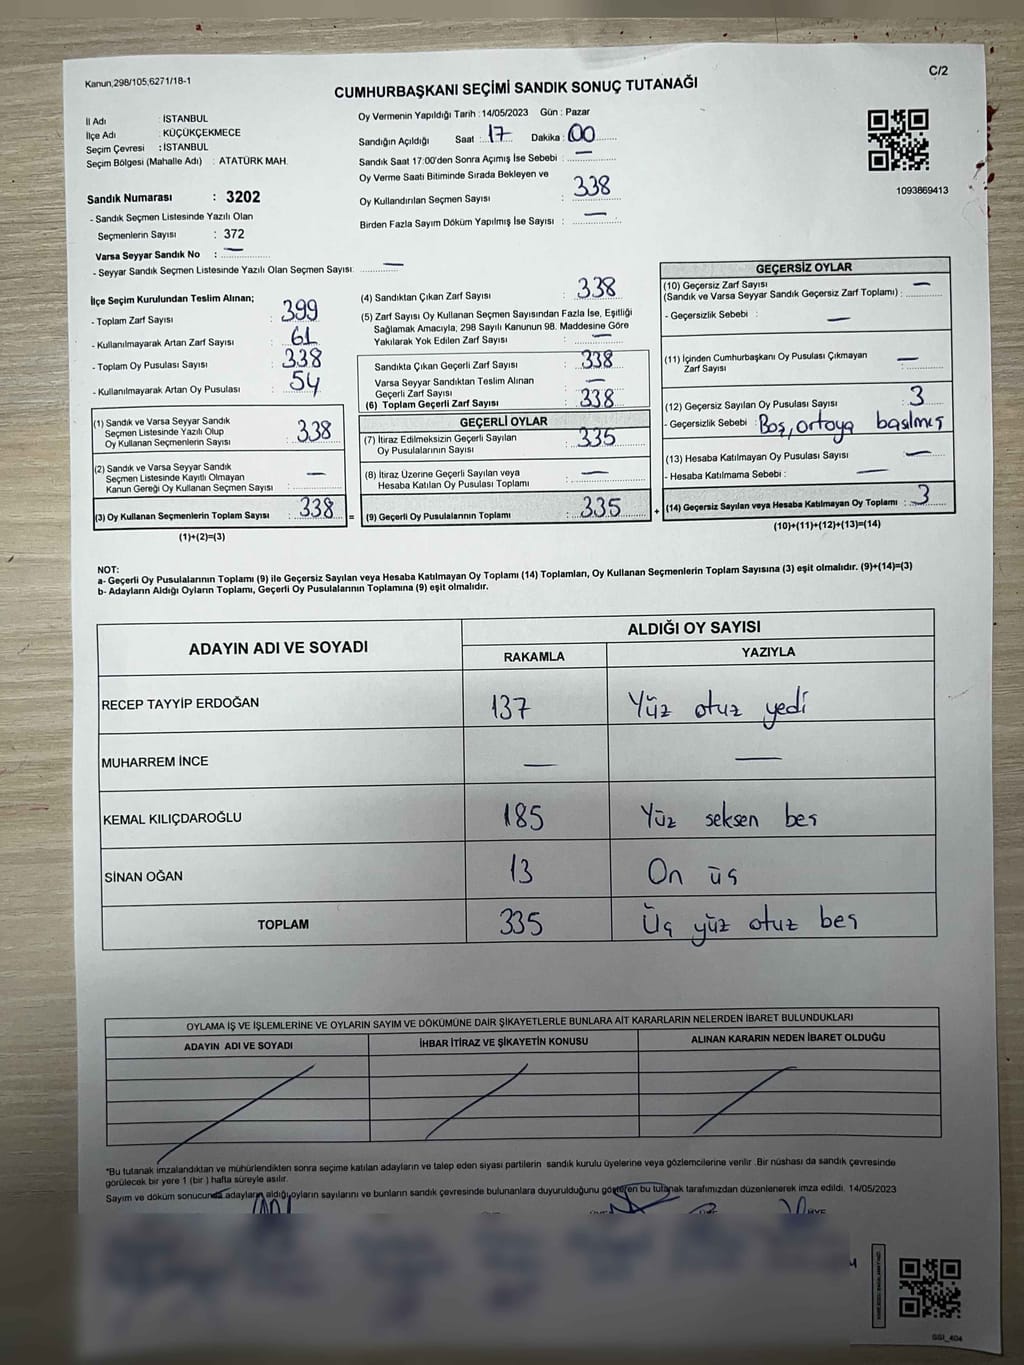 Kanun,298/105,6271/18-1
C/2
CUMHURBAŞKANI SEÇİMİ SANDIK SONUÇ TUTANAĞI
İl Adı : İSTANBUL
İlçe Adı : KÜÇÜKÇEKMECE
Seçim Çevresi : İSTANBUL
Seçim Bölgesi (Mahalle Adı) : ATATÜRK MAH.
Sandık Numarası : 3202
- Sandık Seçmen Listesinde Yazılı Olan
Seçmenlerin Sayısı : 372
Varsa Seyyar Sandık No : —
- Seyyar Sandık Seçmen Listesinde Yazılı Olan Seçmen Sayısı: —
Oy Vermenin Yapıldığı Tarih : 14/05/2023 Gün : Pazar
Sandığın Açıldığı Saat : 17 Dakika : 00
Sandık Saat 17:00'den Sonra Açımış İse Sebebi : —
Oy Verme Saati Bitiminde Sırada Bekleyen ve
Oy Kullandırılan Seçmen Sayısı : 338
Birden Fazla Sayım Döküm Yapılmış İse Sayısı : —
1093869413
İlçe Seçim Kurulundan Teslim Alınan;
- Toplam Zarf Sayısı : 399
- Kullanılmayarak Artan Zarf Sayısı : 61
- Toplam Oy Pusulası Sayısı : 338
- Kullanılmayarak Artan Oy Pusulası : 54
(1) Sandık ve Varsa Seyyar Sandık
Seçmen Listesinde Yazılı Olup
Oy Kullanan Seçmenlerin Sayısı : 338
(2) Sandık ve Varsa Seyyar Sandık
Seçmen Listesinde Kayıtlı Olmayan
Kanun Gereği Oy Kullanan Seçmen Sayısı : —
(3) Oy Kullanan Seçmenlerin Toplam Sayısı : 338 =
(1)+(2)=(3)
(4) Sandıktan Çıkan Zarf Sayısı : 338
(5) Zarf Sayısı Oy Kullanan Seçmen Sayısından Fazla İse, Eşitliği
Sağlamak Amacıyla, 298 Sayılı Kanunun 98. Maddesine Göre
Yakılarak Yok Edilen Zarf Sayısı : —
Sandıkta Çıkan Geçerli Zarf Sayısı : 338
Varsa Seyyar Sandıktan Teslim Alınan
Geçerli Zarf Sayısı : —
(6) Toplam Geçerli Zarf Sayısı : 338
GEÇERLİ OYLAR
(7) İtiraz Edilmeksizin Geçerli Sayılan
Oy Pusulalarının Sayısı : 335
(8) İtiraz Üzerine Geçerli Sayılan veya
Hesaba Katılan Oy Pusulası Toplamı : —
(9) Geçerli Oy Pusulalarının Toplamı : 335 +
GEÇERSİZ OYLAR
(10) Geçersiz Zarf Sayısı
(Sandık ve Varsa Seyyar Sandık Geçersiz Zarf Toplamı) : —
- Geçersizlik Sebebi : —
(11) İçinden Cumhurbaşkanı Oy Pusulası Çıkmayan
Zarf Sayısı : —
(12) Geçersiz Sayılan Oy Pusulası Sayısı : 3
- Geçersizlik Sebebi : Boş, ortaya basılmış
(13) Hesaba Katılmayan Oy Pusulası Sayısı : —
- Hesaba Katılmama Sebebi : —
(14) Geçersiz Sayılan veya Hesaba Katılmayan Oy Toplamı : 3
(10)+(11)+(12)+(13)=(14)
NOT:
a- Geçerli Oy Pusulalarının Toplamı (9) ile Geçersiz Sayılan veya Hesaba Katılmayan Oy Toplamı (14) Toplamları, Oy Kullanan Seçmenlerin Toplam Sayısına (3) eşit olmalıdır. (9)+(14)=(3)
b- Adayların Aldığı Oyların Toplamı, Geçerli Oy Pusulalarının Toplamına (9) eşit olmalıdır.
ADAYIN ADI VE SOYADI
ALDIĞI OY SAYISI
RAKAMLA YAZIYLA
RECEP TAYYİP ERDOĞAN 137 Yüz otuz yedi
MUHARREM İNCE — —
KEMAL KILIÇDAROĞLU 185 Yüz seksen beş
SİNAN OĞAN 13 On üç
TOPLAM 335 Üç yüz otuz beş
OYLAMA İŞ VE İŞLEMLERİNE VE OYLARIN SAYIM VE DÖKÜMÜNE DAİR ŞİKAYETLERLE BUNLARA AİT KARARLARIN NELERDEN İBARET BULUNDUKLARI
ADAYIN ADI VE SOYADI İHBAR İTİRAZ VE ŞİKAYETİN KONUSU ALINAN KARARIN NEDEN İBARET OLDUĞU
*Bu tutanak imzalandıktan ve mühürlendikten sonra seçime katılan adayların ve talep eden siyasi partilerin sandık kurulu üyelerine veya gözlemcilerine verilir .Bir nüshası da sandık çevresinde
görülecek bir yere 1 (bir ) hafta süreyle asılır.
Sayım ve döküm sonucunda adayların aldığı oyların sayılarını ve bunların sandık çevresinde bulunanlara duyurulduğunu gösteren bu tutanak tarafımızdan düzenlenerek imza edildi. 14/05/2023
GSI_404